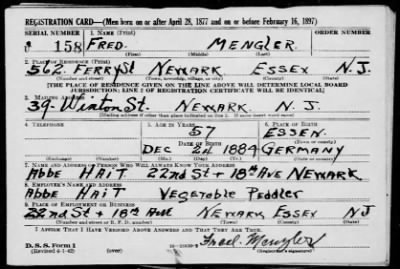 REGISTRATION CARD—(Men born on or after April 28, 1877 and on or before February 16, 1897)
SERIAL NUMBER 1. NAME (Print) ORDER NUMBER
U 158 FRED. MENGLER.
(First) (Middle) (Last)
2. PLACE OF RESIDENCE (Print)
562. FERRY St NEWARK ESSEX N.J.
(Number and street) (Town, township, village, or city) (County) (State)
[THE PLACE OF RESIDENCE GIVEN ON THE LINE ABOVE WILL DETERMINE LOCAL BOARD
JURISDICTION; LINE 2 OF REGISTRATION CERTIFICATE WILL BE IDENTICAL]
3. MAILING ADDRESS
39. Winton St. NEWARK. N. J.
[Mailing address if other than place indicated on line 2. If same insert word same]
4. TELEPHONE 5. AGE IN YEARS 6. PLACE OF BIRTH
57 ESSEN.
DATE OF BIRTH (Town or county)
DEC 24 1884 GERMANY
(Exchange) (Number) (Mo.) (Day) (Yr.) (State or country)
7. NAME AND ADDRESS OF PERSON WHO WILL ALWAYS KNOW YOUR ADDRESS
Abbe HAIT 22nd St + 18th Ave NEWARK.
8. EMPLOYER'S NAME AND ADDRESS
Abbe HAIT Vegetable Peddler
9. PLACE OF EMPLOYMENT OR BUSINESS
22nd St + 18th Ave Newark, Essex N J
(Number and street or R. F. D. number) (Town) (County) (State)
I AFFIRM THAT I HAVE VERIFIED ABOVE ANSWERS AND THAT THEY ARE TRUE.
D. S. S. Form 1
(Revised 4-1-42) (over) Fred. Mengler